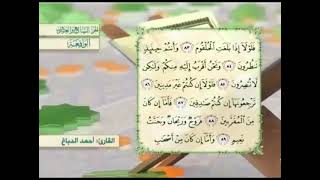 الجزء السابع والعشرون
الواقعة
فَلَوْلَا إِذَا بَلَغَتِ الْحُلْقُومَ ٨٣ وَأَنتُمْ حِينَئِذٍ
تَنظُرُونَ ٨٤ وَنَحْنُ أَقْرَبُ إِلَيْهِ مِنكُمْ وَلَٰكِن
لَّا تُبْصِرُونَ ٨٥ فَلَوْلَا إِن كُنتُمْ غَيْرَ مَدِينِينَ ٨٦
تَرْجِعُونَهَا إِن كُنتُمْ صَادِقِينَ ٨٧ فَأَمَّا إِن كَانَ
مِنَ الْمُقَرَّبِينَ ٨٨ فَرَوْحٌ وَرَيْحَانٌ وَجَنَّتُ
نَعِيمٍ ٨٩ وَأَمَّا إِن كَانَ مِنْ أَصْحَابِ
القارئ: أحمد الدباغ